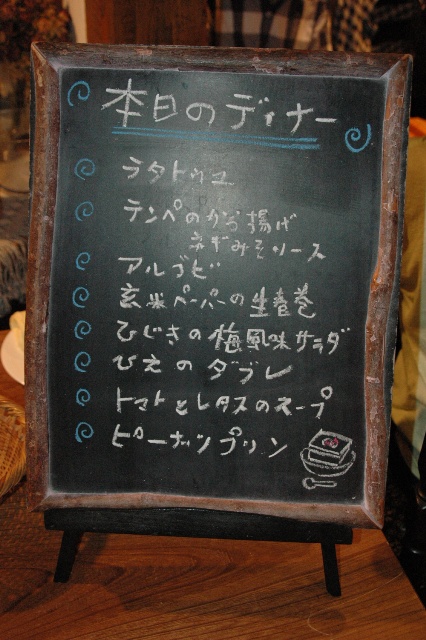 本日のディナー
ラタトゥユ
テンペのから揚げ
ネギみそソース
アルゴビ
玄米ペーパーの生春巻
ひじきの梅風味サラダ
ひえのダブレ
トマトとレタスのスープ
ピーナッツプリン